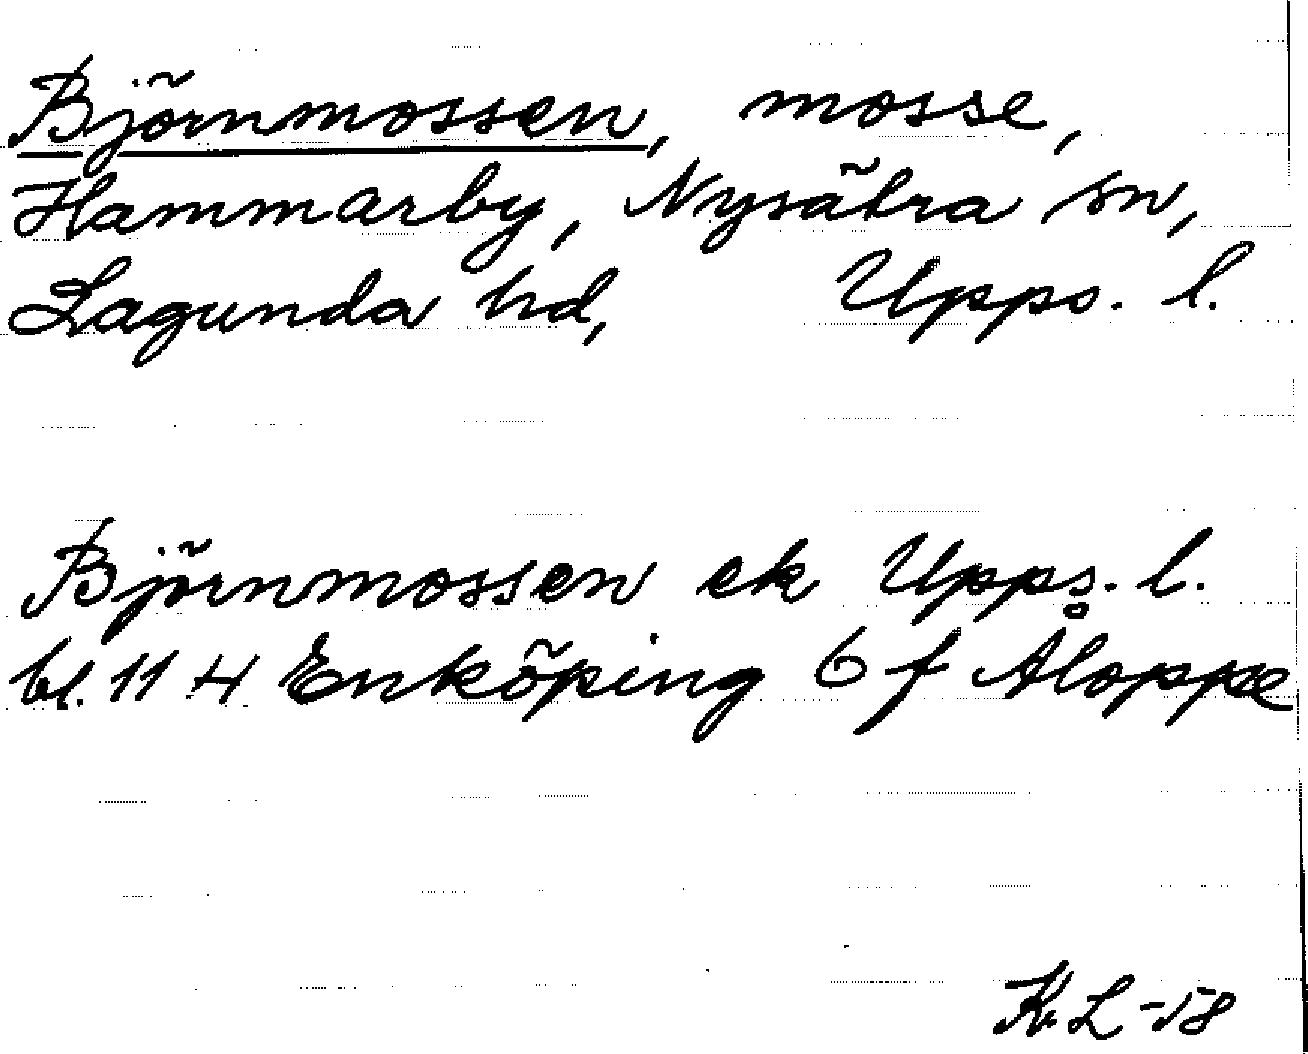 Björnmossen, mosse,
Hammarby, Nysätra sn,
Lagunda hd, Upps. l.
Björnmossen ek Upps. l.
bl. 114 Enköping 6 f Åloppe
K. L -58